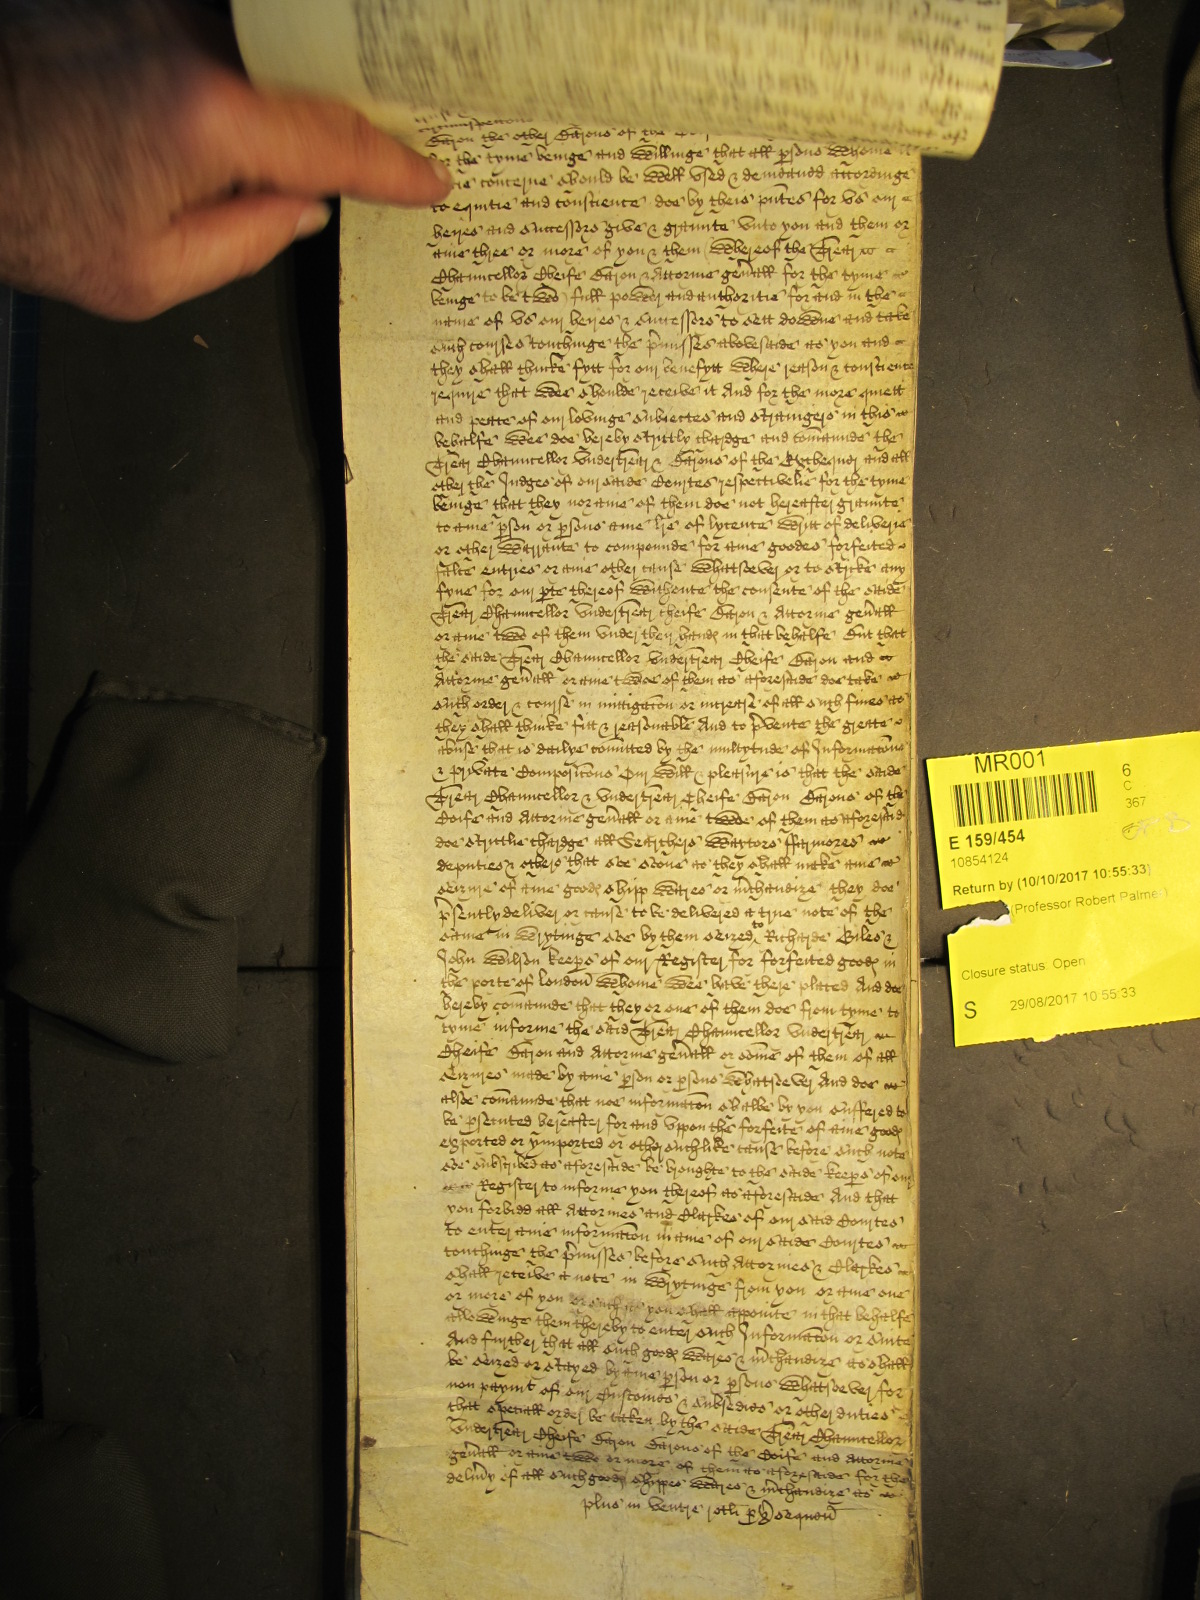 circumspeccions
Baron the other Barons of the
for the tyme beinge and Willinge that all psons Whome
concerne should be Well vsed & demeaned accordinge
to equitie and conscience doe by theis pntes for vs our
heires and Successors give & graunte vnto you and them or
anie three or more of you & them Whereof the Trear
Chauncellor Cheife Baron & Attorme gen'all for the tyme
beinge to be tWoo full poWer and authoritie for and in the
name of vs our heires & Successors to sett doWne and take
such courses touchinge the p'misses abovesaide as you and
they shall thinke fytt for our benefytt Where reason & conscience
require that Wee shoulde receive it And for the more quiett
and peace of our lovinge subiectes and strangers in this
behalfe Wee doe hereby strictly chardge and comaunde the
Trear Chauncellor vndertrear & Barons of the Exchequer and all
other the Judges of our saide Courtes respectivelie for the tyme
beinge that they nor anie of them doe not hereafter graunte
to anie pson or psons anie lre of lycence Writt of deliverie
or other Warrante to compounde for anie goodes forfeited
false entries or anie other cause Whatsoever or to stricke any
fyne for our pte thereof Withoute the consente of the saide
Trear Chauncellor vndertrear cheife Baron & Attorme gen'all
or anie tWoo of them vnder their hand in that behalfe But that
the saide Trear Chauncellor vndertrear Cheife Baron and
Attorme gen'all or anie tWoe of them as aforesaide doe take
such order & course in mitigacon or increase of all such fines as
they shall thinke fitt & reasonable And to p'vente the greate
abuse that is dailye comitted by the multytude of Informacons
& private Composicons Our Will & pleasure is that the saide
Trear Chauncellor & vndertrear Cheife Baron Barons of the
Coife and Attorme gen'all or anie tWoe of them as aforesaid
doe strictlie chardge all Searchers Waytors ffarmores
deputies & others that soe soone as they shall make anie
seizure of anie good shipp Wares or m'chandize they doe
p'sently deliver or cause to be delivered a true note of the
same in Wrytinge soe by them seized to Richarde Giles &
John Wilson keeps of our Register for forfeited good in
the porte of london Whome Wee have there placed And doe
hereby comaunde that they or one of them doe from tyme to
tyme informe the said Trear Chauncellor vndertrear
Cheife Baron and Attorme gen'all or some of them of all
seizures made by anie pson or psons Whatsoever And doe
alsoe comaunde that noe informacon shalbe by you suffered to
be psecuted hereafter for and vppon the forfeite of anie good
exported or ymported or other suchlike cause before such note
soe subscribed as aforesaide be broughte to the saide keeps of our
Register to informe you thereof as aforesaide And that
you forbidd all Attornies and Clarkes of our said Courtes
to enter anie informacon in anie of our saide Courtes
touchinge the p'misses before such Attornies & Clarkes
shall receive a note in Wrytinge from you or anie one
or more of you or such as you shall appointe in that behalfe
alloWinge them thereby to enter such Informacon or suite
And further that all such good Wares & m'chandize as shall
be seized or stayed by anie pson or psons Whatsoever for
non paymt of our Customes & subsedies or other duties
that speciall order be taken by the saide Trear Chauncellor
vndertrear Cheife Baron Barons of the Coife and Attorme
gen'all or anie tWoo or more of them as aforesaide for the
deliv'y of all such good shippes Wares & m'chandize as
plus in ventre rotli
MR001
6
C
367
E 159/454
10854124
Return by (10/10/2017 10:55:33)
(Professor Robert Palmer)
Closure status: Open
S
29/08/2017 10:55:33